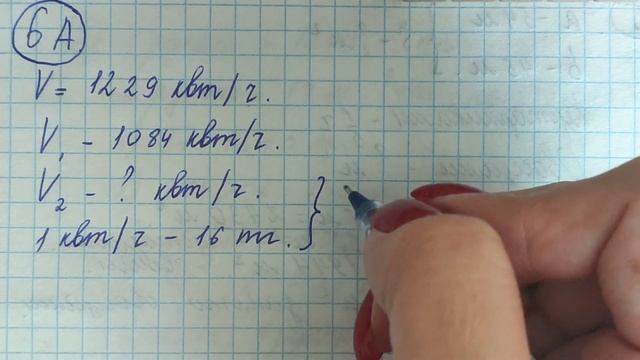 6 А
V = 1229 квт/ч.
V₁ - 1084 квт/ч.
V₂ - ? квт/ч.
1 квт/ч - 16 тг.